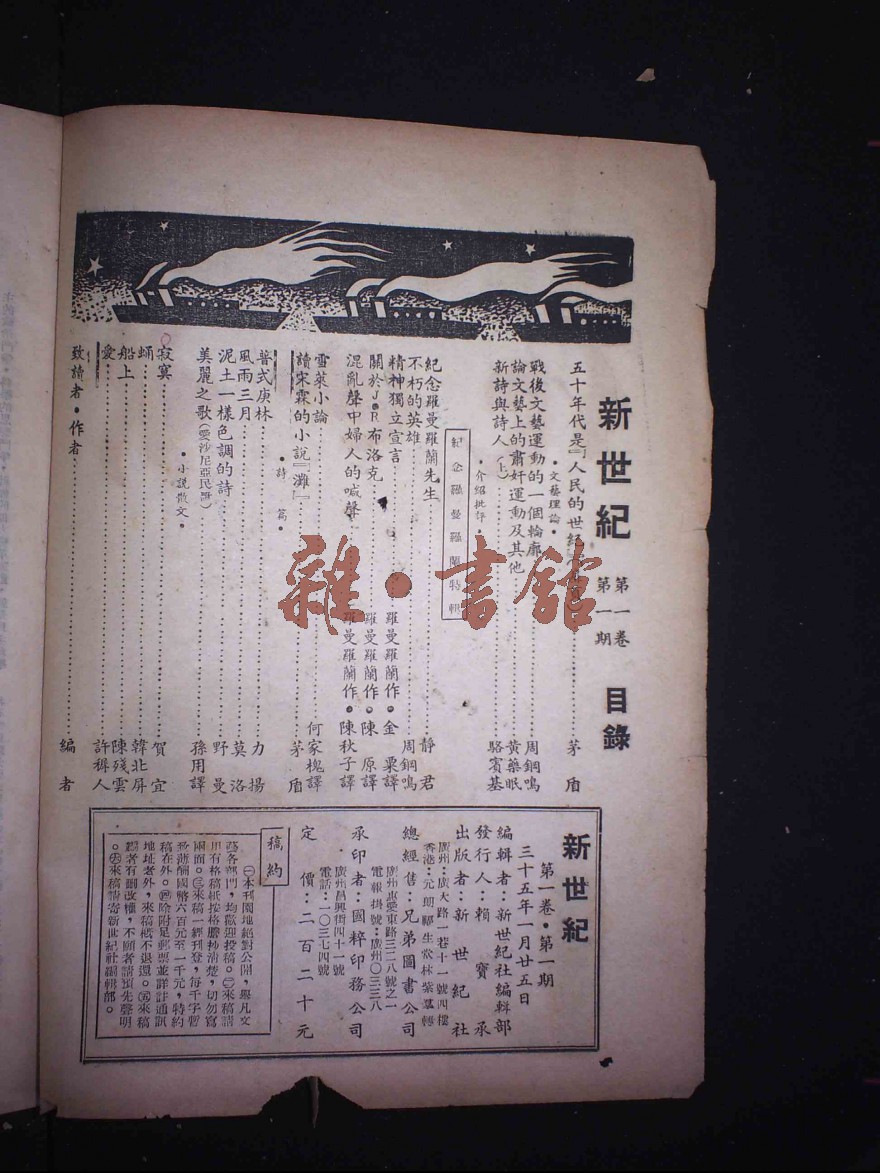 新世紀 第一卷 第一期 目錄
五十年代是『人民的世紀』 茅盾
•文藝理論•
戰後文藝運動的一個輪廓 周鋼鳴
論文藝上的肅奸運動及其他 黃藥眠
新詩與詩人(上) 駱賓基
•介紹批評•
紀念羅曼羅蘭特輯
紀念羅曼羅蘭先生 靜君
不朽的英雄 周鋼鳴
精神獨立宣言 羅曼羅蘭作•金粟譯
關於J•R布洛克 羅曼羅蘭作•陳原譯
混亂聲中婦人的喊聲 羅曼羅蘭作•陳秋子譯
雪萊小論 何家槐譯
讀宋霖的小說『灘』 茅盾
•詩篇•
普式庚林 力揚
風雨三月 莫洛
泥土一樣色調的詩 野曼
美麗之歌(愛沙尼亞民謌) 孫用譯
•小說散文•
寂寞 賀宜
蛹 韓北屏
船上 陳殘雲
愛 許稱人
致讀者•作者 編者
新世紀
第一卷•第一期
三十五年一月廿五日
編輯者:新世紀社編輯部
發行人:賴寶承
出版者:新世紀社
廣州:廣大路一巷十一號四樓
香港:元朗壽生堂林紫羣轉
總經售:兄弟圖書公司
廣州惠愛東路三二八號之一
電報掛號:廣州〇三三八
承印者:國粹印務公司
廣州昌興街四十一號
電話:一〇三七四號
定價:二百二十元
稿約
㊀本刊園地絕對公開,舉凡文
藝各部門,均歡迎投稿。㊁來稿請
用有格稿紙按格謄抄清楚,切勿寫
兩面。㊂來稿一經刊登,每千字暫
致薄酬國幣六百元至一千元,特約
稿在外。㊃除附足郵票並詳註通訊
地址者外,來稿概不退還。㊄來稿
編者有刪改權,不願者請預先聲明
。㊅來稿請寄新世紀社編輯部。
雜•書館